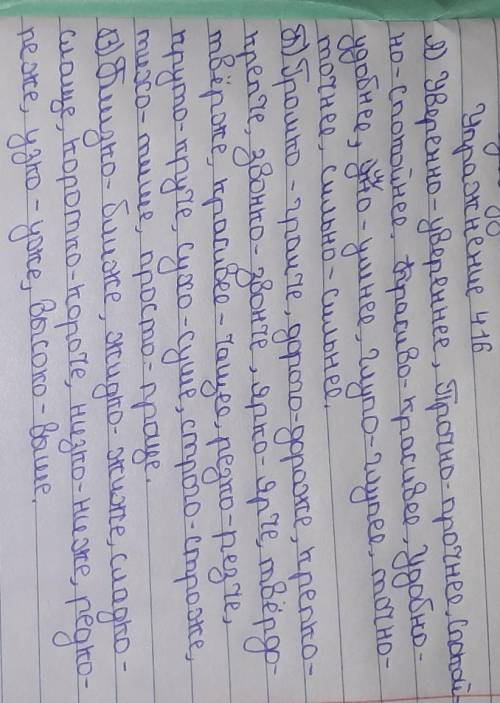 Упражнение 416
А) Уверенно-увереннее, Прочно-прочнее, спокой-
но-спокойнее, красиво-красивее, удобно-
удобнее, умно-умнее, глупо-глупее, точно-
точнее, сильно-сильнее.
Б) Громко-громче, дорого-дороже, крепко-
крепче, звонко-звонче, ярко-ярче, твёрдо-
твёрже, красивее-чаще, резко-резче,
круто-круче, сухо-суше, строго-строже,
тихо-тише, просто-проще.
В) Близко-ближе, жидко-жиже, сладко-
слаще, коротко-короче, низко-ниже, редко-
реже, узко-уже, высоко-выше.